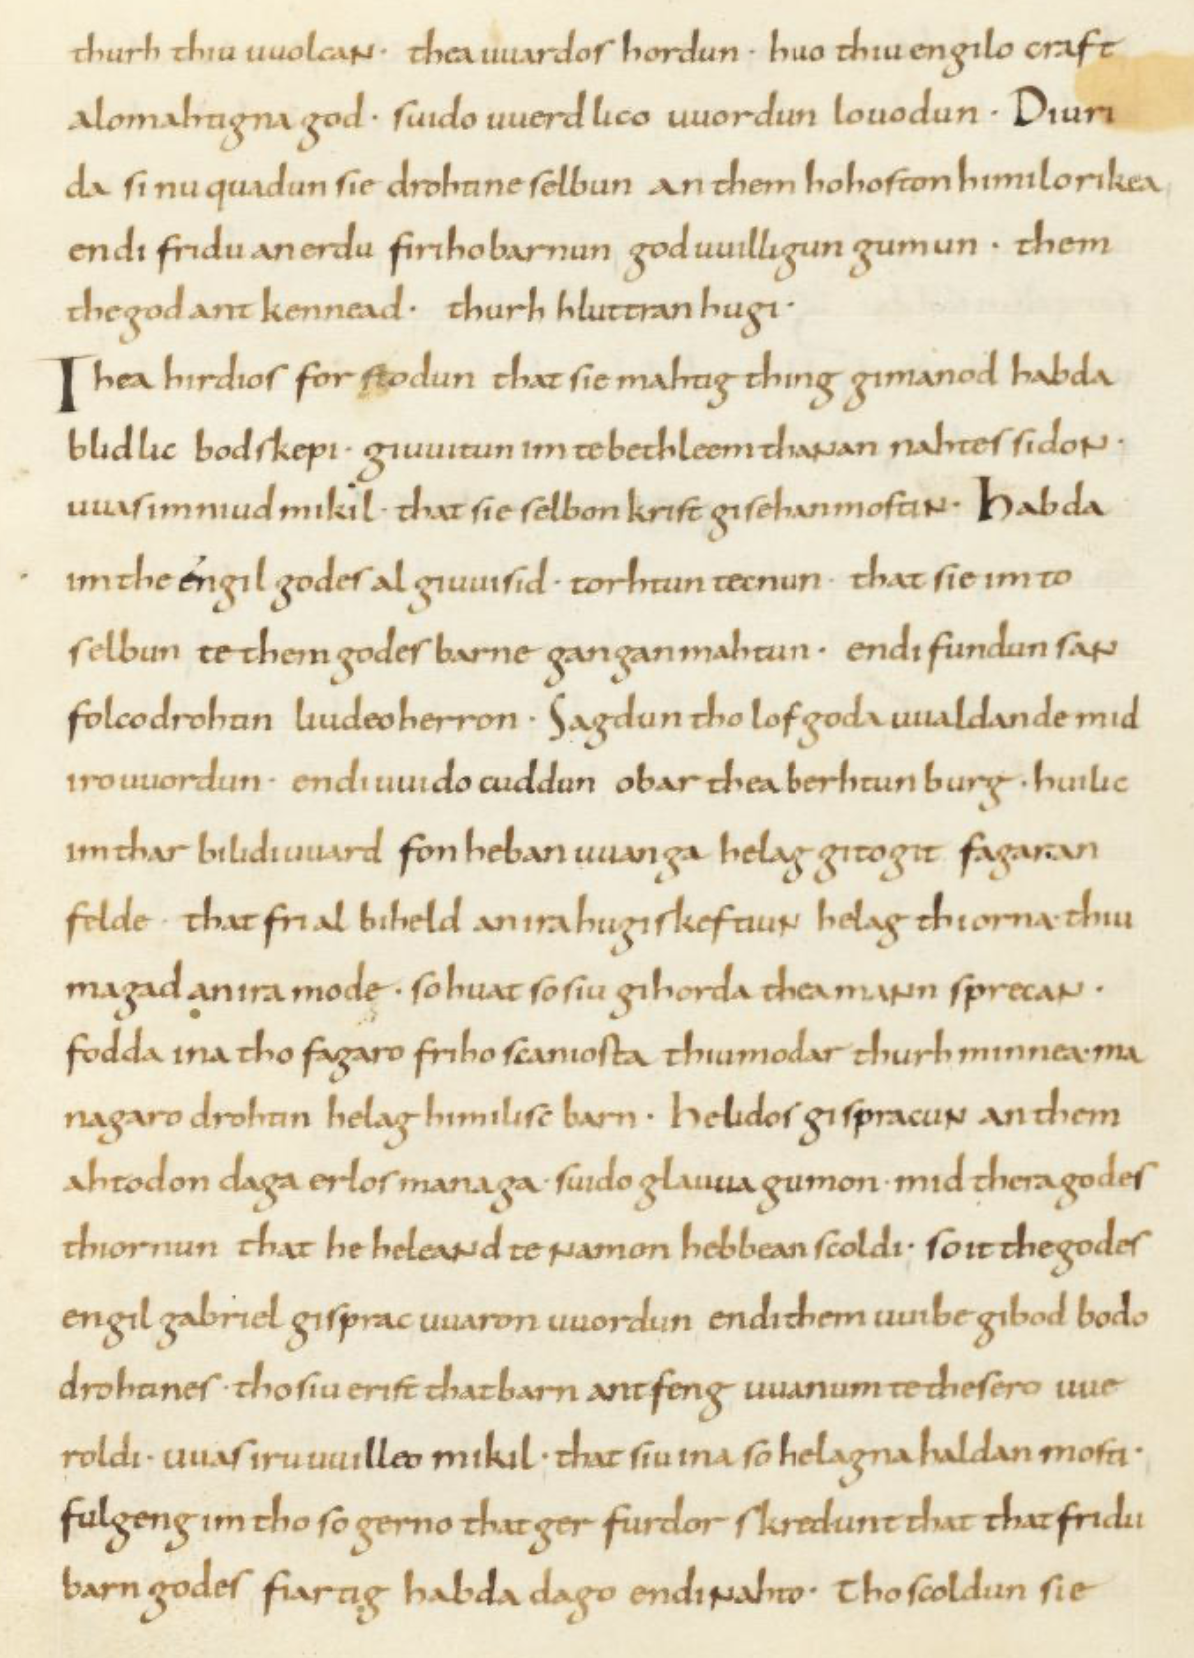 thurh thiu uuolcan · thea uuardos hordun · huo thiu engilo craft
alomahtigna god · suido uuerdlico uuordun louodun · Diuri
da si nu quadun sie drohtine selbun an them hohoston himilo rikea
endi fridu an erdu firiho barnun goduuilligun gumun · them
the god antkennead · thurh hluttran hugi ·
Thea hirdios forstodun that sie mahtig thing gimanod habda
blidlic bodskepi · giuuitun im te bethleem thanan nahtes sidon ·
uuas im niud mikil · that sie selbon krist gisehan mostin · Habda
im the engil godes al giuuisid · torhtun tecnun · that sie im to
selbun te them godes barne gangan mahtun · endi fundun san
folco drohtin liudeo herron · Sagdun tho lof goda uualdande mid
iro uuordun · endi uuido cuddun obar thea berhtun burg · huilic
im thar bilidi uuard fon hebanuuanga helag gitogit fagar an
felde · that fri al biheld an ira hugiskeftiun helag thiorna · thiu
magad an ira mode · so huat so siu gihorda thea mann sprecan ·
fodda ina tho fagaro friho scaniosta thiu modar thurh minnea · ma
nagaro drohtin helag himilisc barn · helidos gispracun an them
ahtodon daga erlos managa · suido glauua gumon · mid thera godes
thiornun that he heleand te namon hebbean scoldi · so it the godes
engil gabriel gisprac uuaron uuordun endi them uuibe gibod bodo
drohtines · tho siu erist that barn antfeng uuanum te thesero uue
roldi · uuas iru uuilleo mikil · that siu ina so helagna haldan mosti ·
fulgeng im tho so gerno that ger furdor skred unt that that fridu
barn godes fiartig habda dago endi nahto · Tho scoldun sie